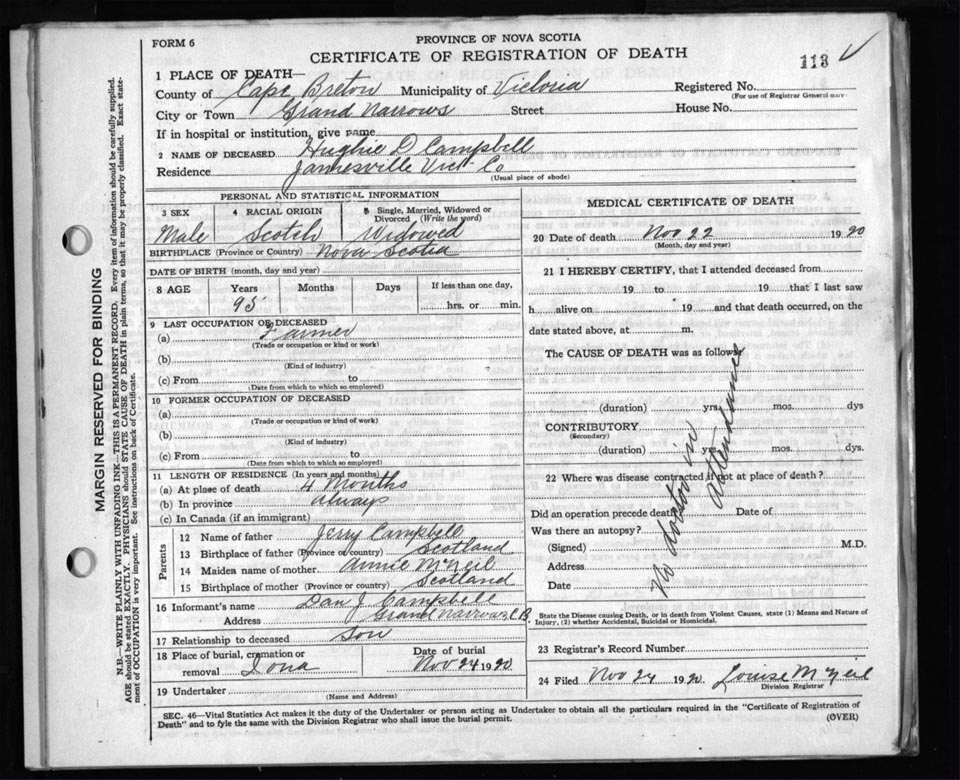 FORM 6
PROVINCE OF NOVA SCOTIA
CERTIFICATE OF REGISTRATION OF DEATH
113
1 PLACE OF DEATH—
County of Cape Breton Municipality of Victoria Registered No.
(For use of Registrar General only
City or Town Grand Narrows Street House No.
If in hospital or institution, give name
2 NAME OF DECEASED Hughie D Campbell
Residence Jamesville Vict. Co
(Usual place of abode)
PERSONAL AND STATISTICAL INFORMATION
3 SEX 4 RACIAL ORIGIN 5 Single, Married, Widowed or Divorced (Write the word)
Male Scotch Widowed
BIRTHPLACE (Province or Country) Nova Scotia
DATE OF BIRTH (month, day and year)
8 AGE Years Months Days If less than one day,
95 hrs. or min.
9 LAST OCCUPATION OF DECEASED
(a) Farmer
(Trade or occupation or kind or work)
(b)
(Kind of industry)
(c) From to
(Date from which to which so employed)
10 FORMER OCCUPATION OF DECEASED
(a)
(Trade or occupation or kind of work)
(b)
(Kind of industry)
(c) From to
(Date from which to which so employed)
11 LENGTH OF RESIDENCE (In years and months)
(a) At place of death 4 Months
(b) In province always
(c) In Canada (if an immigrant)
Parents
12 Name of father Jerry Campbell
13 Birthplace of father (Province or country) Scotland
14 Maiden name of mother Annie McNeil
15 Birthplace of mother (Province or country) Scotland
16 Informant's name Dan J Campbell
Address Grand Narrows C.B.
17 Relationship to deceased son
18 Place of burial, cremation or removal Iona Date of burial Nov 24 1920
19 Undertaker
(Name and Address)
MEDICAL CERTIFICATE OF DEATH
20 Date of death Nov 22 1920
(Month, day and year)
21 I HEREBY CERTIFY, that I attended deceased from
19 to 19 that I last saw
h alive on 19 and that death occurred, on the
date stated above, at m.
The CAUSE OF DEATH was as follows
(duration) yrs. mos. dys
CONTRIBUTORY
(Secondary)
(duration) yrs. mos. dys
22 Where was disease contracted if not at place of death?
Did an operation precede death Date of
Was there an autopsy?
(Signed) M.D.
Address
Date
No doctor in attendance
State the Disease causing Death, or in death from Violent Causes, state (1) Means and Nature of
Injury, (2) whether Accidental, Suicidal or Homicidal.
23 Registrar's Record Number
24 Filed Nov 24 1920. Louise McNeil
Division Registrar
SEC. 46—Vital Statistics Act makes it the duty of the Undertaker or person acting as Undertaker to obtain all the particulars required in the "Certificate of Registration of
Death" and to fyle the same with the Division Registrar who shall issue the burial permit.
(OVER)
MARGIN RESERVED FOR BINDING
N.B.—WRITE PLAINLY WITH UNFADING INK—THIS IS A PERMANENT RECORD. Every item of information should be carefully supplied.
AGE should be stated EXACTLY. PHYSICIANS should STATE CAUSE OF DEATH in plain terms, so that it may be properly classified. Exact state-
ment of OCCUPATION is very important. See instructions on back of Certificate.